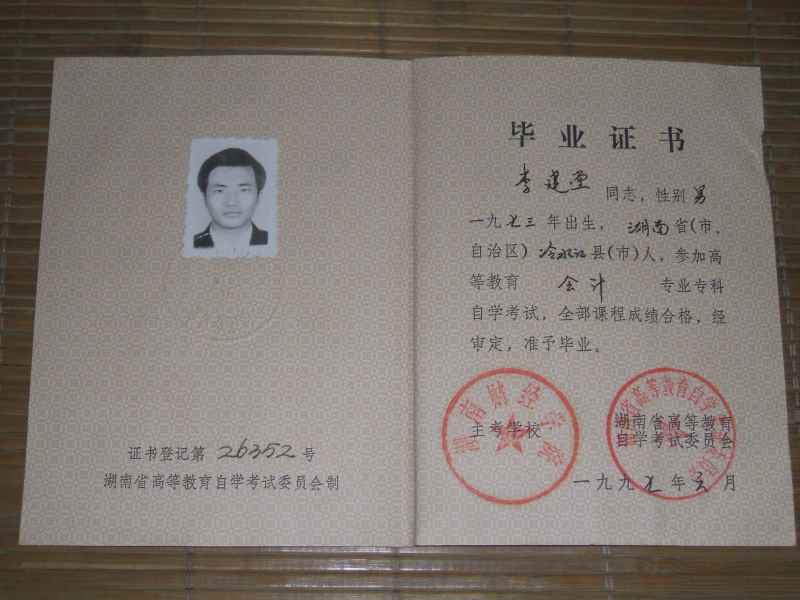 证书登记第 26352 号
湖南省高等教育自学考试委员会制
毕业证书
李建 同志，性别 男
一九七三年出生，湖南省（市、
自治区）冷水江县（市）人，参加高
等教育 会计 专业专科
自学考试，全部课程成绩合格，经
审定，准予毕业。
湖南财经学院
主考学校
湖南省高等教育自学考试委员会
湖南省高等教育
自学考试委员会
一九九七年 月